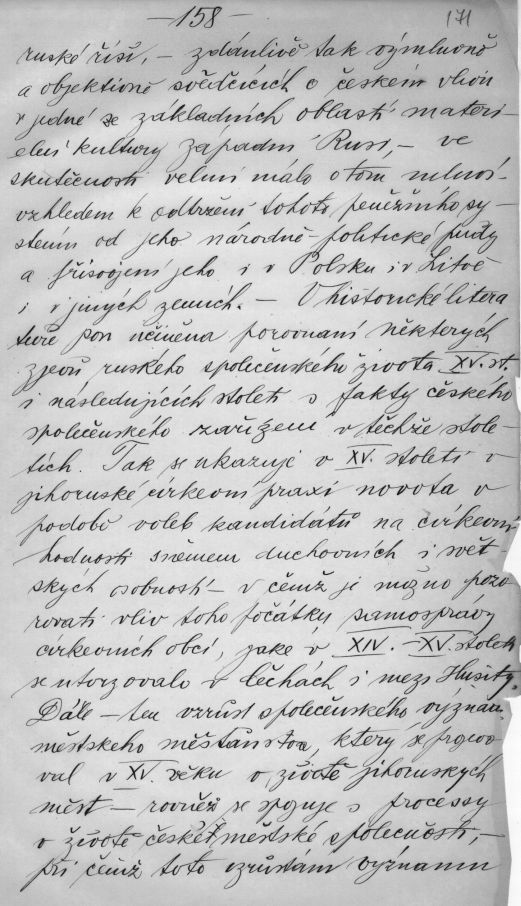 — 158 — 171
ruské říši, — zdánlivě tak výmluvně
a objektivně svědčících o českém vlivu
v jedné ze základních oblastí materi-
elní kultury západní Rusi, — ve
skutečnosti velmi málo o tom mluví
vzhledem k odtržení tohoto peněžního sy-
stému od jeho národně-politické půdy
a přisvojení jeho i v Polsku i v Litvě
i v jiných zemích. — V historické litera
tuře jsou učiněna porovnaní některých
zjevů ruského společenského života XV. st.
i následujících století s fakty českého
společenského zařízení v těchže stole-
tích. Tak se ukazuje v XV. století v
jihoruské církevní praxi novota v
podobě voleb kandidátů na církevní
hodnosti sněmem duchovních i svět-
ských osobností — v čemž je možno pozo-
rovati vliv toho počátku samosprávy
církevních obcí, jake v XIV. — XV. stoleti
se utvrzovalo v Čechách i mezi Husity.
Dále — ten vzrůst společenského význam
městskeho měšťanstva, který se projevo-
val v XV. věku v životě jihoruskych
měst — rovněž se spojuje s processy
v životě české městské společnosti, —
při čemž toto vzrůstání významu